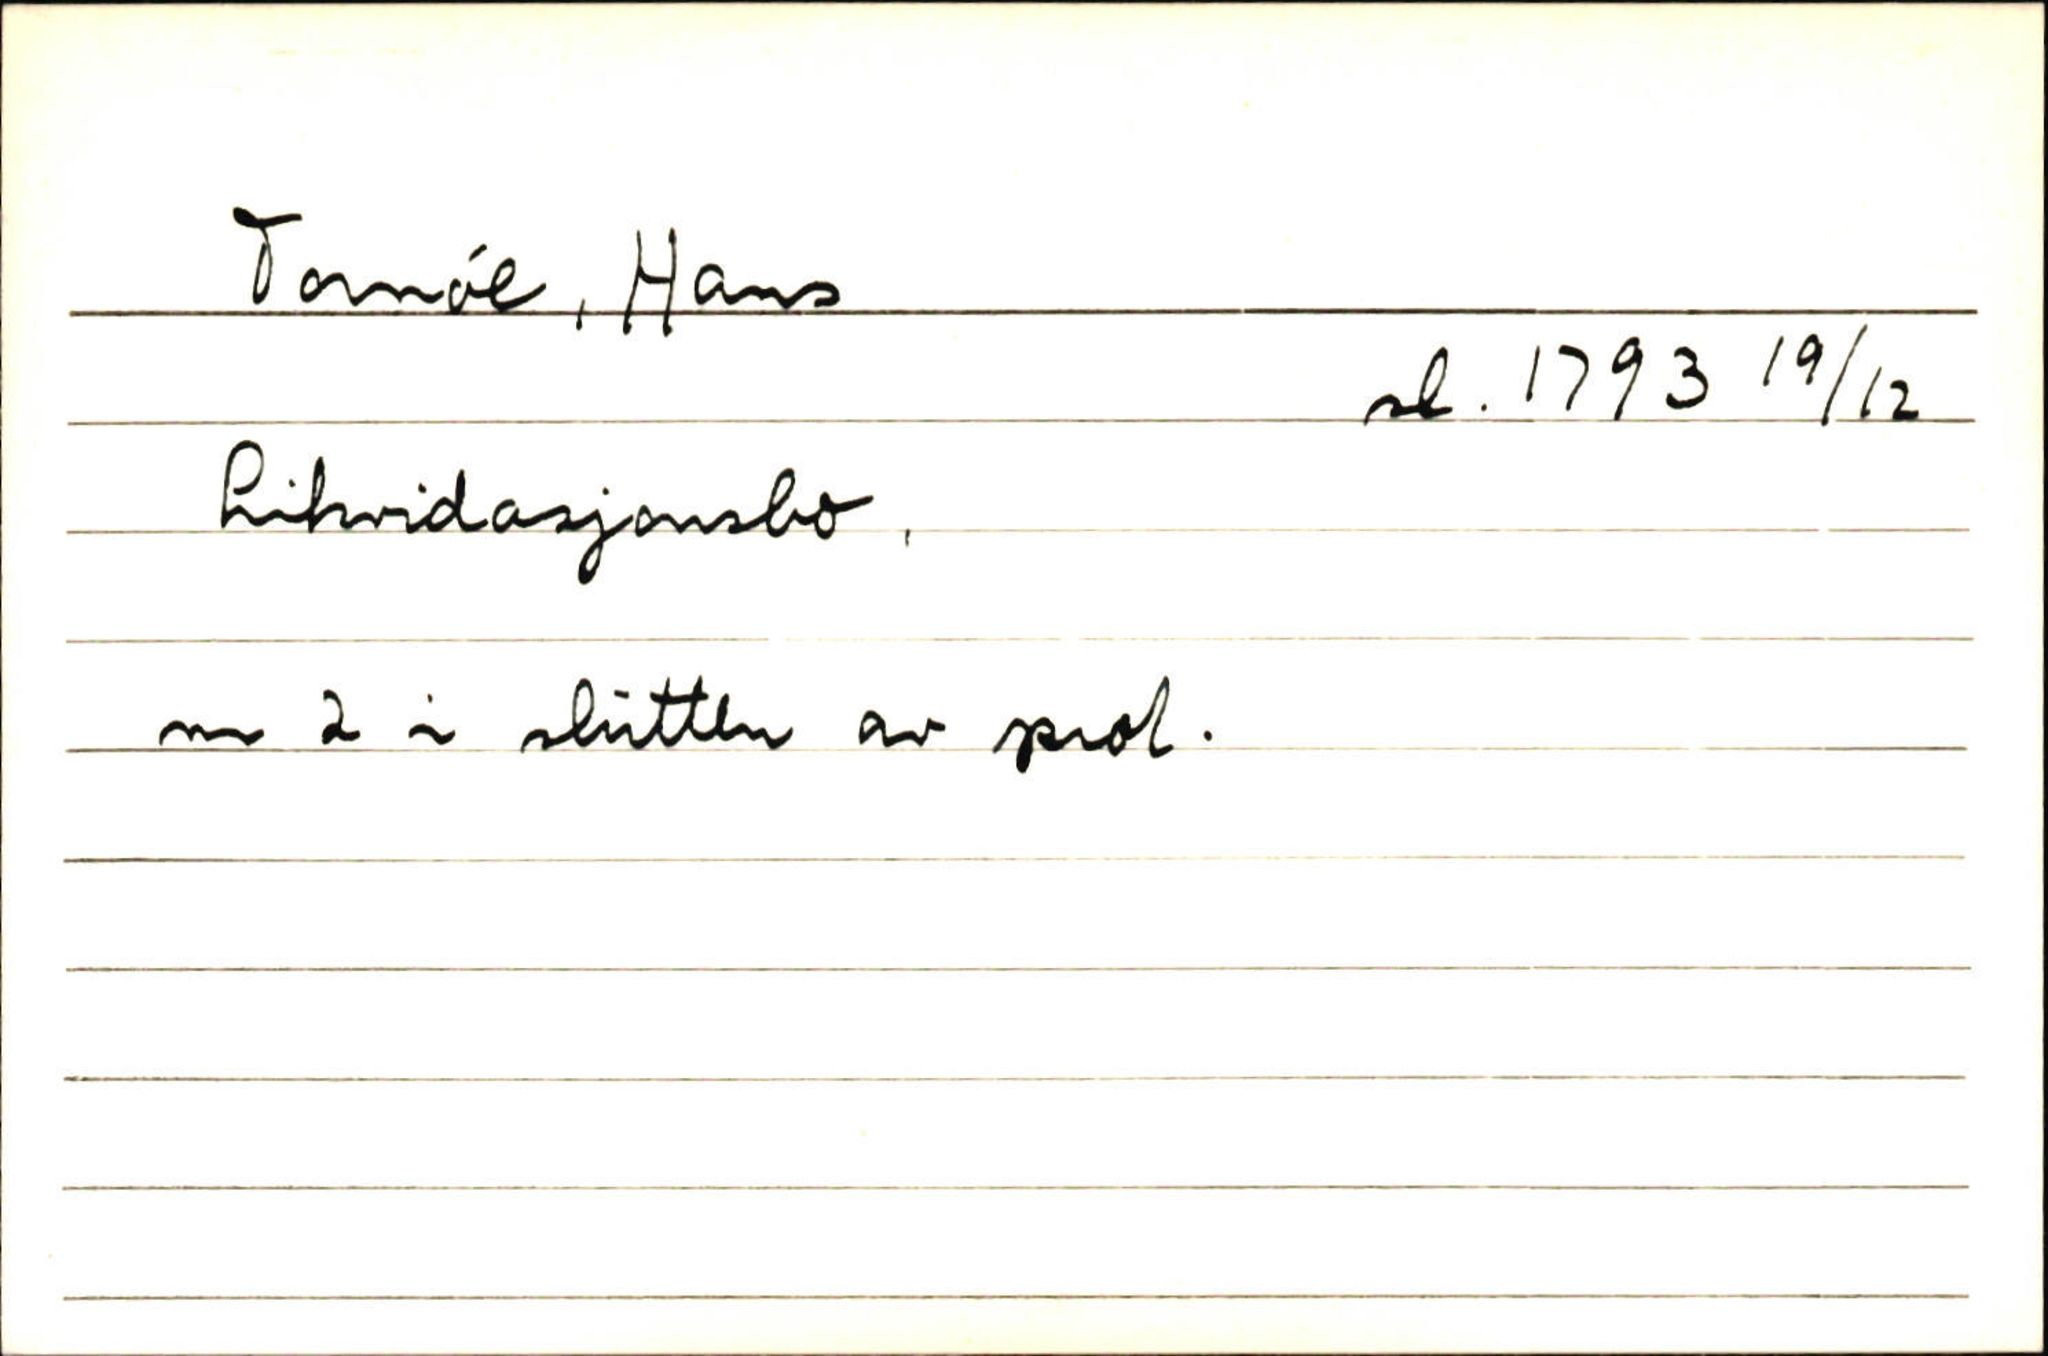 Tornöe, Hans
sl. 1793 19/12
Likvidasjonsbo,
nr 2 i slutten av prot.